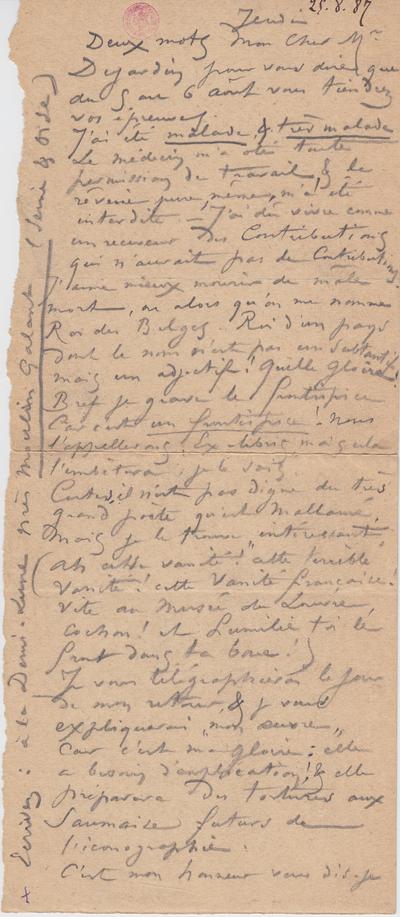 25.8.87
Jeudi
Deux mots Mon Cher Mr
Dujardin pour vous dire que
du 5 au 6 août vous tiendrez
vos épreuves.
J'ai été malade, & très malade
Le médecin m'a ôté toute
permission de travail, & la
rêverie pure, même, m'a été
interdite – J'ai dû vivre comme
un receveur des Contributions
qui n'aurait pas de Contributions.
J'aime mieux mourir de mâle
mort, ou alors qu'on me nomme
Roi des Belges. Roi d'un pays
dont le nom n'est pas un substantif
mais un adjectif! Quelle gloire!
Bref je grave le frontispice
Car c'est un frontispice! Nous
l'appellerons Ex-libris mais cela
l'embêtera, je le sais.
Certes, il n'est pas digne du très
grand poète qu'est Mallarmé,
Mais je le trouve "intéressant"
(Ah cette vanité! cette terrible
Vanité! cette Vanité française!
Va au Musée du Louvre,
cochon! et humilie toi le
front dans ta boue!)
Je vous télégraphierai le jour
de mon retour, & je vous
expliquerai "mon œuvre"
Car c'est ma gloire: elle
a besoin d'explication! & elle
préparera des tortures aux
Saumaise futurs de
l'iconographie.
C'est mon honneur vous dis-je
x Ecrivez: à la Demi-Lune près Moulin Galant (Seine & Oise)